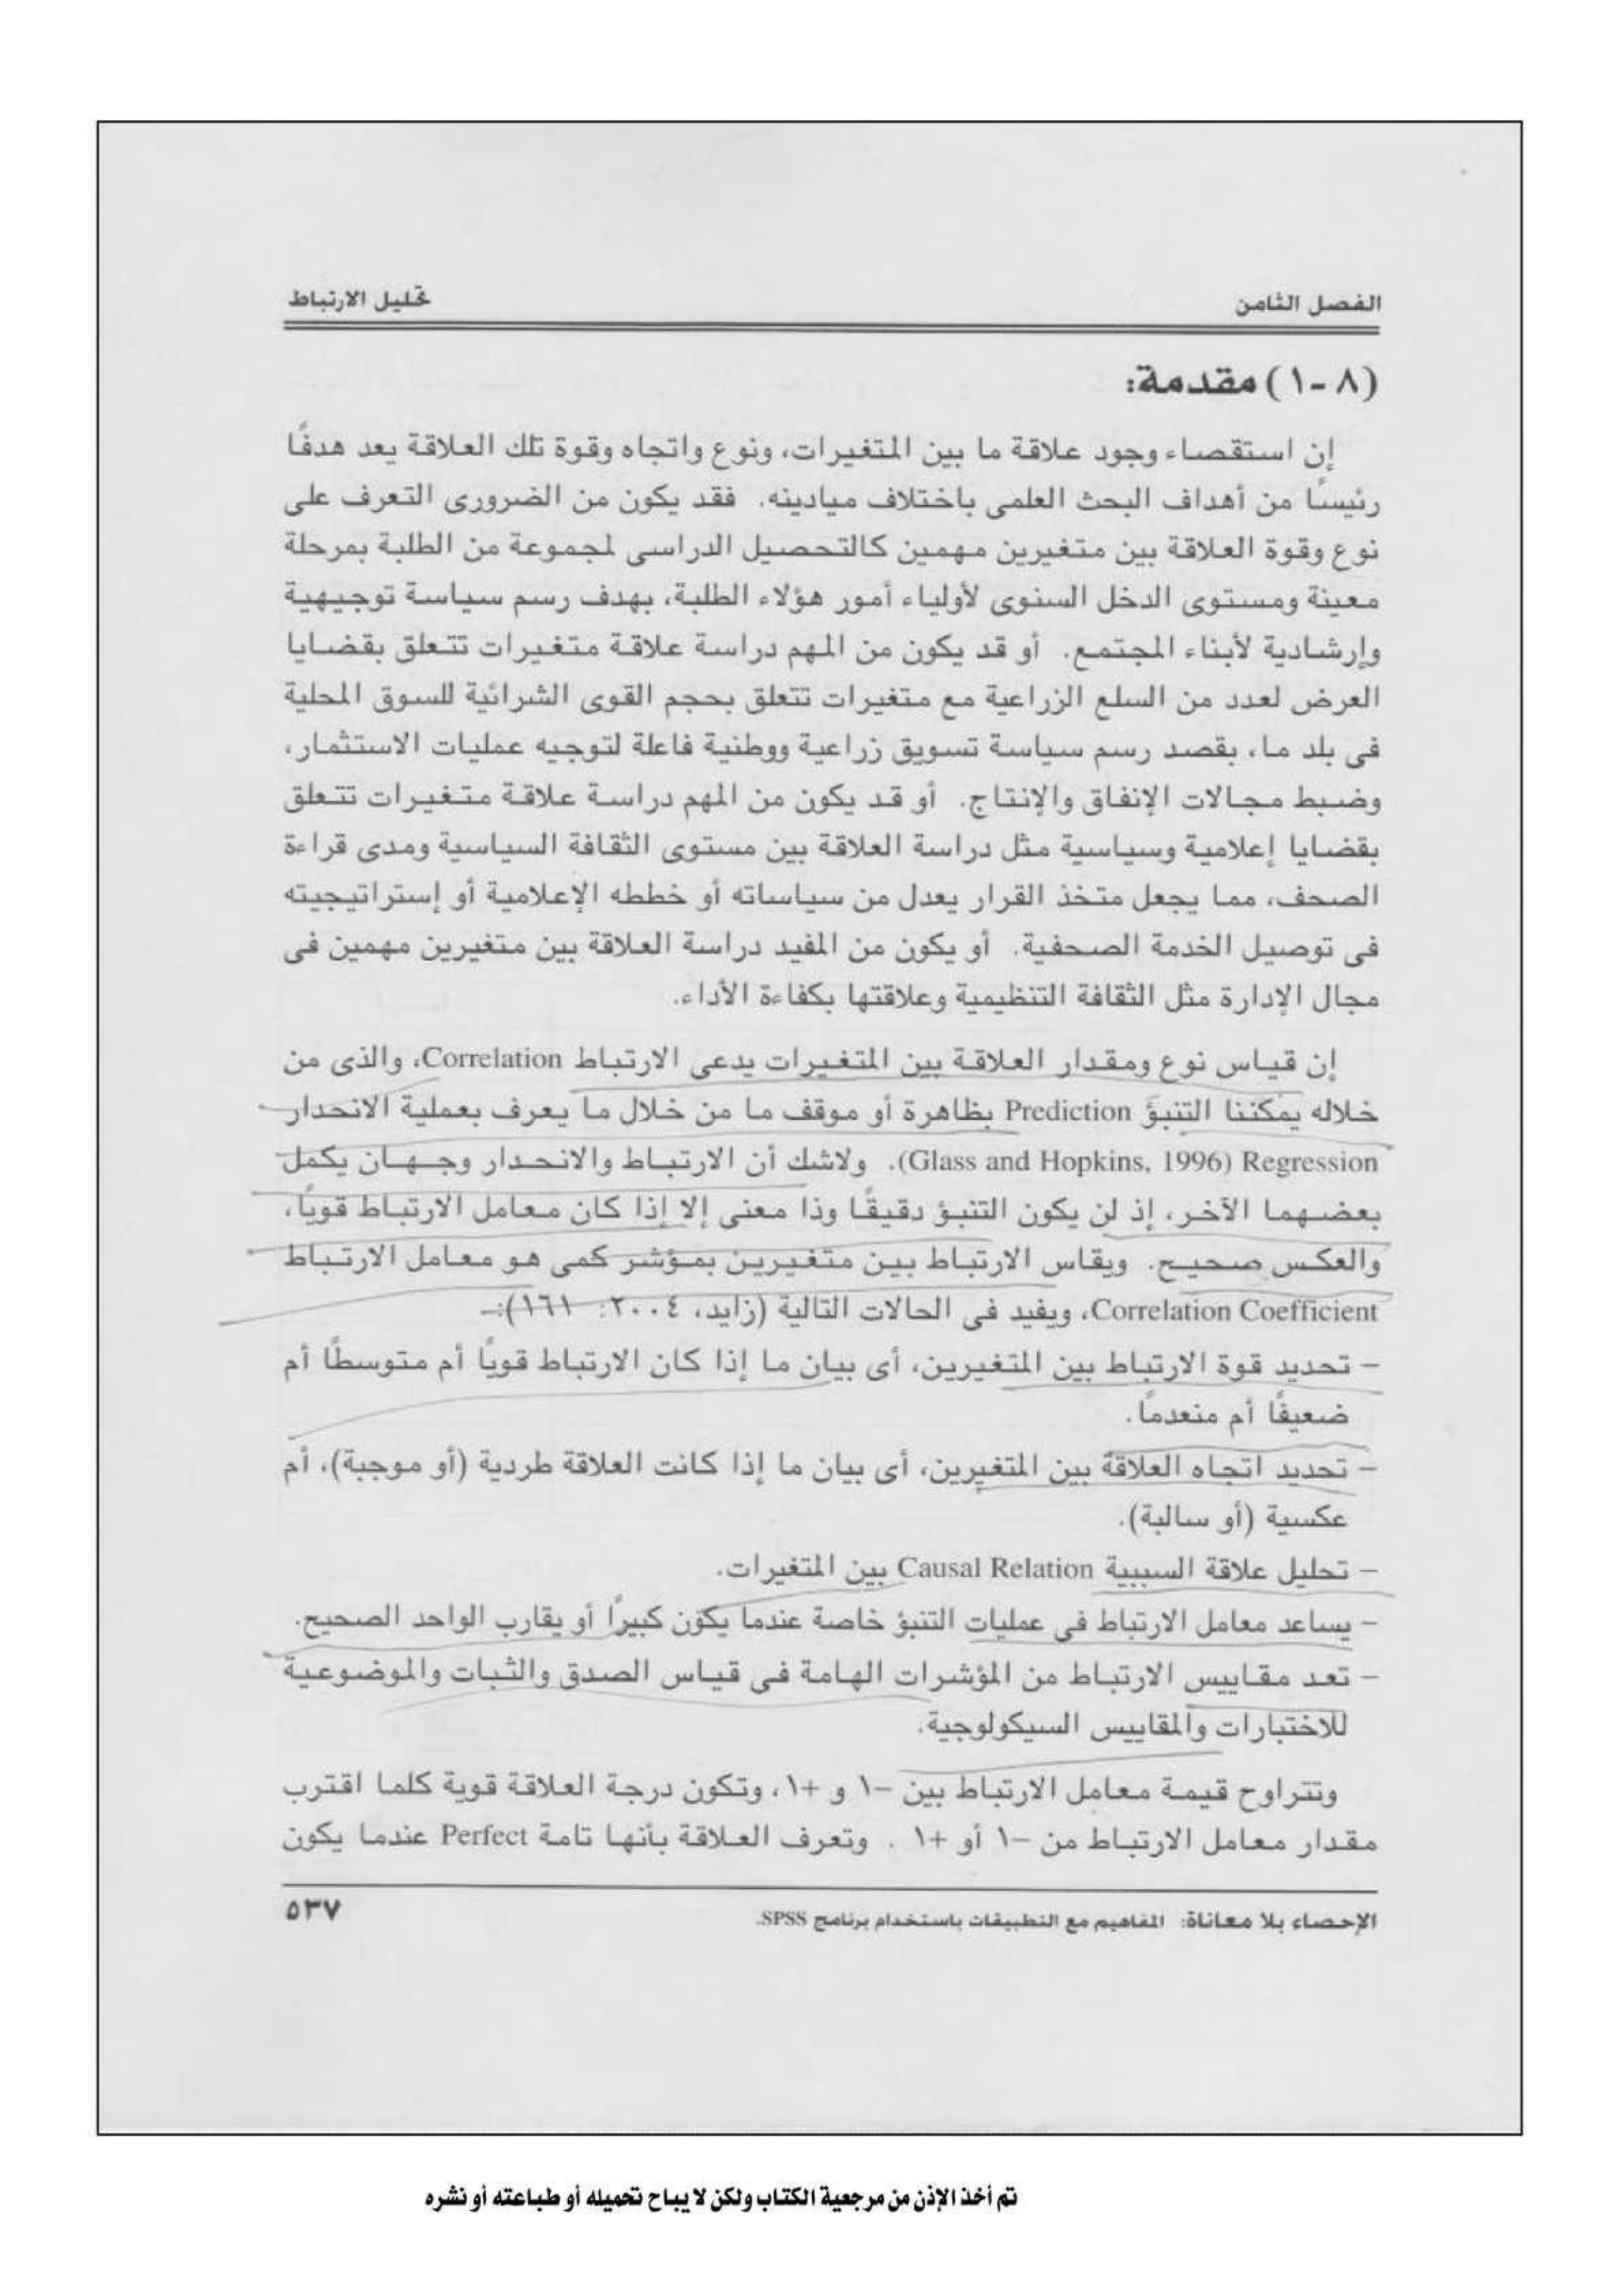 الفصل الثامن
تحليل الارتباط
(٨-١) مقدمة:
إن استقصاء وجود علاقة ما بين المتغيرات، ونوع واتجاه وقوة تلك العلاقة يعد هدفًا
رئيسًا من أهداف البحث العلمى باختلاف ميادينه. فقد يكون من الضرورى التعرف على
نوع وقوة العلاقة بين متغيرين مهمين كالتحصيل الدراسى لمجموعة من الطلبة بمرحلة
معينة ومستوى الدخل السنوى لأولياء أمور هؤلاء الطلبة، بهدف رسم سياسة توجيهية
وإرشادية لأبناء المجتمع. أو قد يكون من المهم دراسة علاقة متغيرات تتعلق بقضايا
العرض لعدد من السلع الزراعية مع متغيرات تتعلق بحجم القوى الشرائية للسوق المحلية
فى بلد ما، بقصد رسم سياسة تسويق زراعية ووطنية فاعلة لتوجيه عمليات الاستثمار،
وضبط مجالات الإنفاق والإنتاج. أو قد يكون من المهم دراسة علاقة متغيرات تتعلق
بقضايا إعلامية وسياسية مثل دراسة العلاقة بين مستوى الثقافة السياسية ومدى قراءة
الصحف، مما يجعل متخذ القرار يعدل من سياساته أو خططه الإعلامية أو إستراتيجيته
فى توصيل الخدمة الصحفية. أو يكون من المفيد دراسة العلاقة بين متغيرين مهمين فى
مجال الإدارة مثل الثقافة التنظيمية وعلاقتها بكفاءة الأداء.
إن قياس نوع ومقدار العلاقة بين المتغيرات يدعى الارتباط Correlation، والذى من
خلاله يمكننا التنبؤ Prediction بظاهرة أو موقف ما من خلال ما يعرف بعملية الانحدار
Regression (Glass and Hopkins, 1996). ولاشك أن الارتباط والانحدار وجهان يكمل
بعضهما الآخر، إذ لن يكون التنبؤ دقيقًا وذا معنى إلا إذا كان معامل الارتباط قويًا،
والعكس صحيح. ويقاس الارتباط بين متغيرين بمؤشر كمى هو معامل الارتباط
Correlation Coefficient، ويفيد فى الحالات التالية (زايد، ٢٠٠٤: ١٦١):-
- تحديد قوة الارتباط بين المتغيرين، أى بيان ما إذا كان الارتباط قويًا أم متوسطًا أم
ضعيفًا أم منعدمًا.
- تحديد اتجاه العلاقة بين المتغيرين، أى بيان ما إذا كانت العلاقة طردية (أو موجبة)، أم
عكسية (أو سالبة).
- تحليل علاقة السببية Causal Relation بين المتغيرات.
- يساعد معامل الارتباط فى عمليات التنبؤ خاصة عندما يكون كبيرًا أو يقارب الواحد الصحيح.
- تعد مقاييس الارتباط من المؤشرات الهامة فى قياس الصدق والثبات والموضوعية
للاختبارات والمقاييس السيكولوجية.
وتتراوح قيمة معامل الارتباط بين -١ و +١، وتكون درجة العلاقة قوية كلما اقترب
مقدار معامل الارتباط من -١ أو +١ . وتعرف العلاقة بأنها تامة Perfect عندما يكون
الإحصاء بلا معاناة: المفاهيم مع التطبيقات باستخدام برنامج SPSS.
٥٣٧
تم أخذ الإذن من مرجعية الكتاب ولكن لا يباح تحميله أو طباعته أو نشره